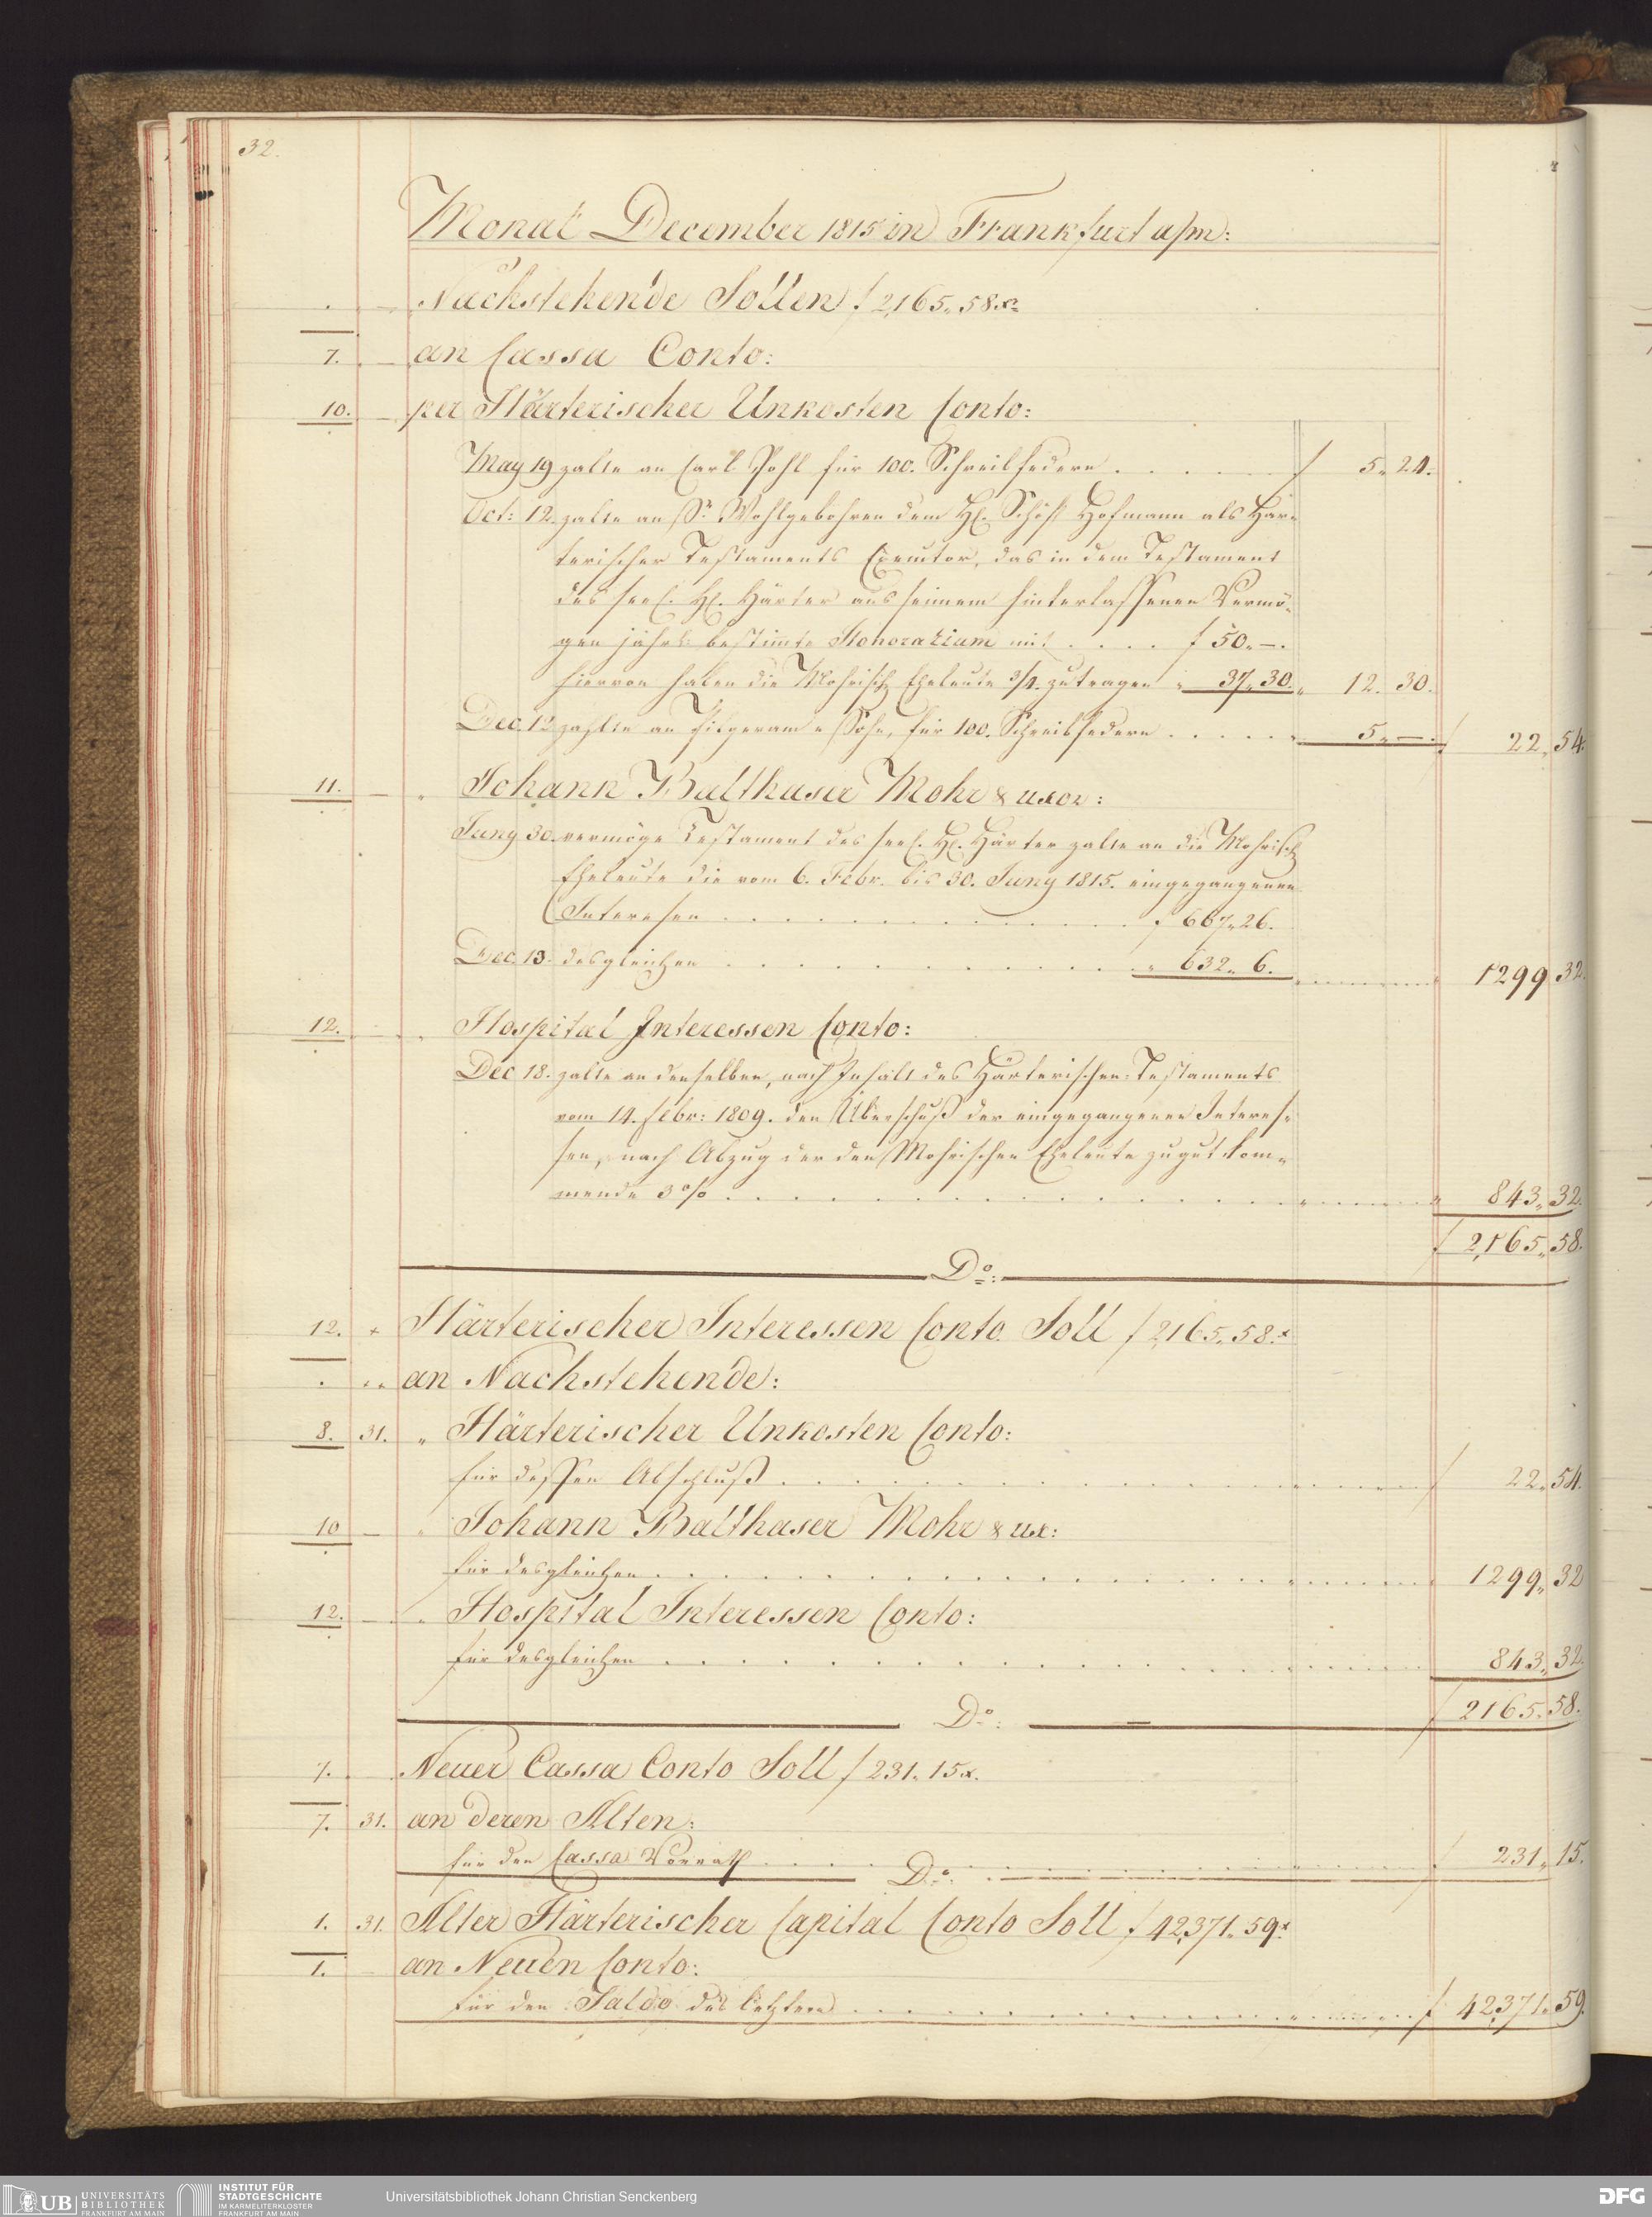 32.
Monat December 1815 in Frankfurt a/m:
Nachstehende Sollen f 2,165.. 58 xr
7. an Cassa Conto:
10. per Härterischer Unkosten Conto:
May 19 zalte an Carl Pohl für 100. Schreibfedern . . . . . f 5.. 24.
Oct: 12. zalte an Sr. Wohlgebohren dem H. Schöff Hofmann als Här-
terischer Testaments Executor, das in dem Testament
des seel. H. Härter aus seinem hinterlassenen Vermö-
gen jährl: bestimte Honorarium mit . . . . f 50.. —.
hiervon haben die Mohrisch Eheleute 3/4. zu tragen " 37.. 30. " 12. 30.
Dec. 12 zahlte an & Sohn, für 100. Schreibfedern . . . . . " 5.. —. f 22.. 54.
11. — " Johann Balthaser Mohr & uxor:
Juny 30. vermöge Testament des seel. H. Härter zalte an die Mohrisch
Eheleute die vom 6. Febr. bis 30. Juny 1815. eingegangenen
Interesen . . . . . . . . . . f 667.. 26.
Dec. 13. desgleichen . . . . . . . . . . " 632.. 6. " 1299 32.
12. — " Hospital Interessen Conto:
Dec 18. zalte an denselben, nach Inhalt des Härterischen Testaments
vom 14. febr: 1809. den Überschuß der eingegangenen Interes-
sen, nach Abzug der den Mohrischen Eheleute zu gut kom-
mende 3 % . . . . . . . . . . " 843.. 32.
f 2,165.. 58.
Do:
12. + Härterischer Interessen Conto Soll f 2,165.. 58. x
an Nachstehende:
8. 31. " Härterischer Unkosten Conto:
für dessen Abschluß . . . . . . . . . . f 22.. 54.
10 — " Johann Balthaser Mohr & ux:
für desgleichen . . . . . . . . . . " 1299.. 32
12. — " Hospital Interessen Conto:
für desgleichen . . . . . . . . . . 843.. 32.
f 2165.. 58.
Do:
7. Neuer Cassa Conto Soll f 231.. 15 x.
7. 31. an deren Alten:
für den Cassa Vorrath . . . . . . . . . . f 231.. 15.
Do:
1. 31. Alter Härterischer Capital Conto Soll f 42,371.. 59. x
1. — an Neuen Conto:
für den Saldo des letztern . . . . . . . . . . f 42,371.. 59.
UB UNIVERSITÄTS
BIBLIOTHEK
FRANKFURT AM MAIN
INSTITUT FÜR
STADTGESCHICHTE
IM KARMELITERKLOSTER
FRANKFURT AM MAIN
Universitätsbibliothek Johann Christian Senckenberg
DFG